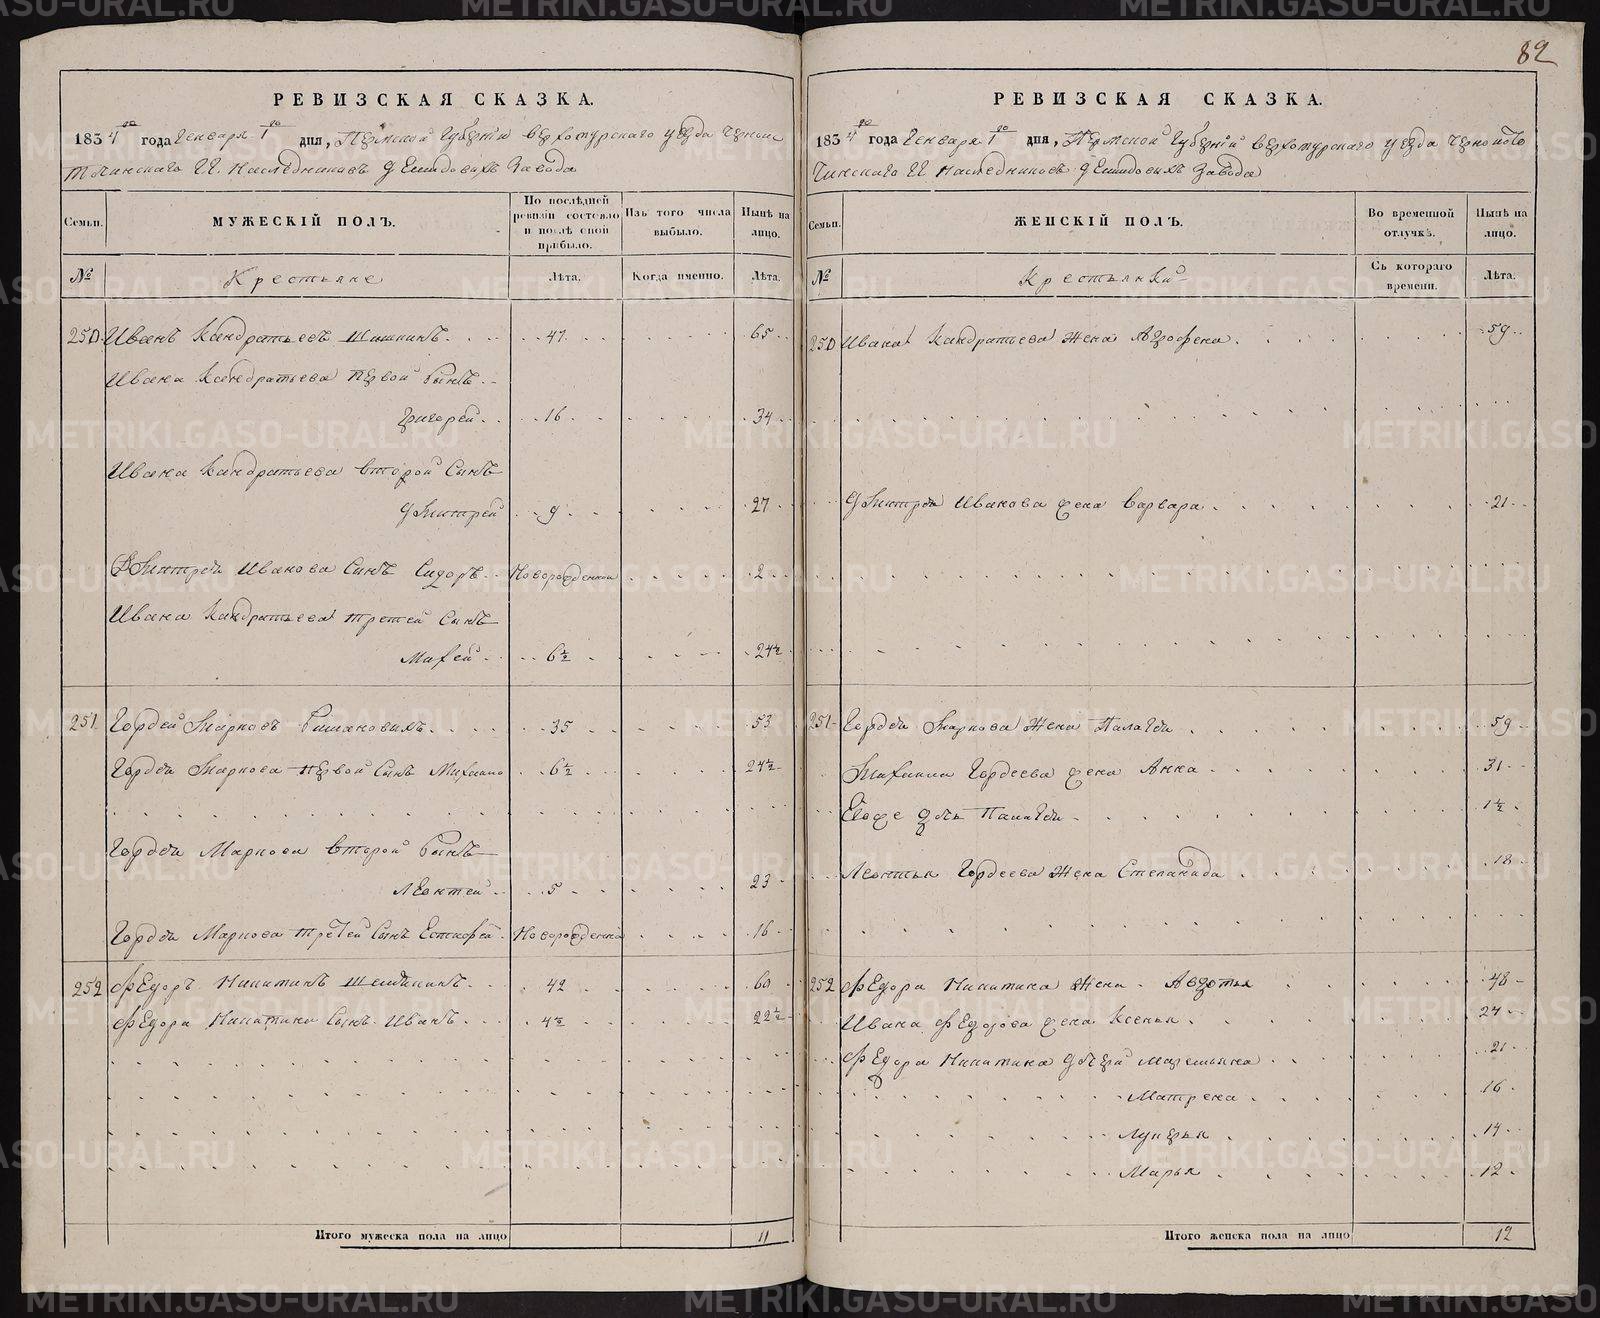 82
РЕВИЗСКАЯ СКАЗКА.
1834го года Генваря 1го дня, Пермской Губернiи Верхотурскаго уезда Черноис
точинскаго ГГ. Наследниковъ Демидовыхъ Завода
Семьи. МУЖЕСКIЙ ПОЛЪ. По послѣдней ревизiи состояло и послѣ оной прибыло. Изъ того числа выбыло. Нынѣ на лицо.
№ Крестьяне Лѣта. Когда именно. Лѣта.
250 Иванъ Кандратьевъ Шишкинъ 47 65
Ивана Кандратьева первой сынъ
Григорей 16 34
Ивана Кандратьева второй сынъ
Дмитрей 9 27
Дмитрея Иванова сынъ Сидоръ Новорожденной 2
Ивана Кандратьева третей сынъ
Михей 6½ 24½
251 Гордей Марковъ 35 53
Гордея Маркова первой сынъ Михаило 6½ 24½
Гордея Маркова второй сынъ
Леонтей 5 23
Гордея Маркова третей сынъ Новорожденной 16
252 Федоръ Никитинъ 42 60
Федора Никитина сынъ Иванъ 4½ 22½
Итого мужеска пола на лицо 11
РЕВИЗСКАЯ СКАЗКА.
1834го года Генваря 1го дня, Пермской Губернiй Верхотурскаго уезда Черноисто
чинскаго ГГ. Наследниковъ Демидовыхъ Завода
Семьи. ЖЕНСКIЙ ПОЛЪ. Во временной отлучкѣ. Нынѣ на лицо.
№ Крестьянки Съ котораго времени. Лѣта.
250 Ивана Кандратьева жена Агрофена 59
Дмитрея Иванова жена Варвара 21
251 Гордея Маркова жена Палагея 59
Михаила Гордеева жена Анна 31
Егоже дочь Палагея 1½
Леонтья Гордеева жена Степанида 18
252 Федора Никитина жена Авдотья 48
Ивана Федорова жена Ксенья 24
Федора Никитина дочери Маремьяна 21
Матрена 16
Лукерья 14
Марья 12
Итого женска пола на лицо 12